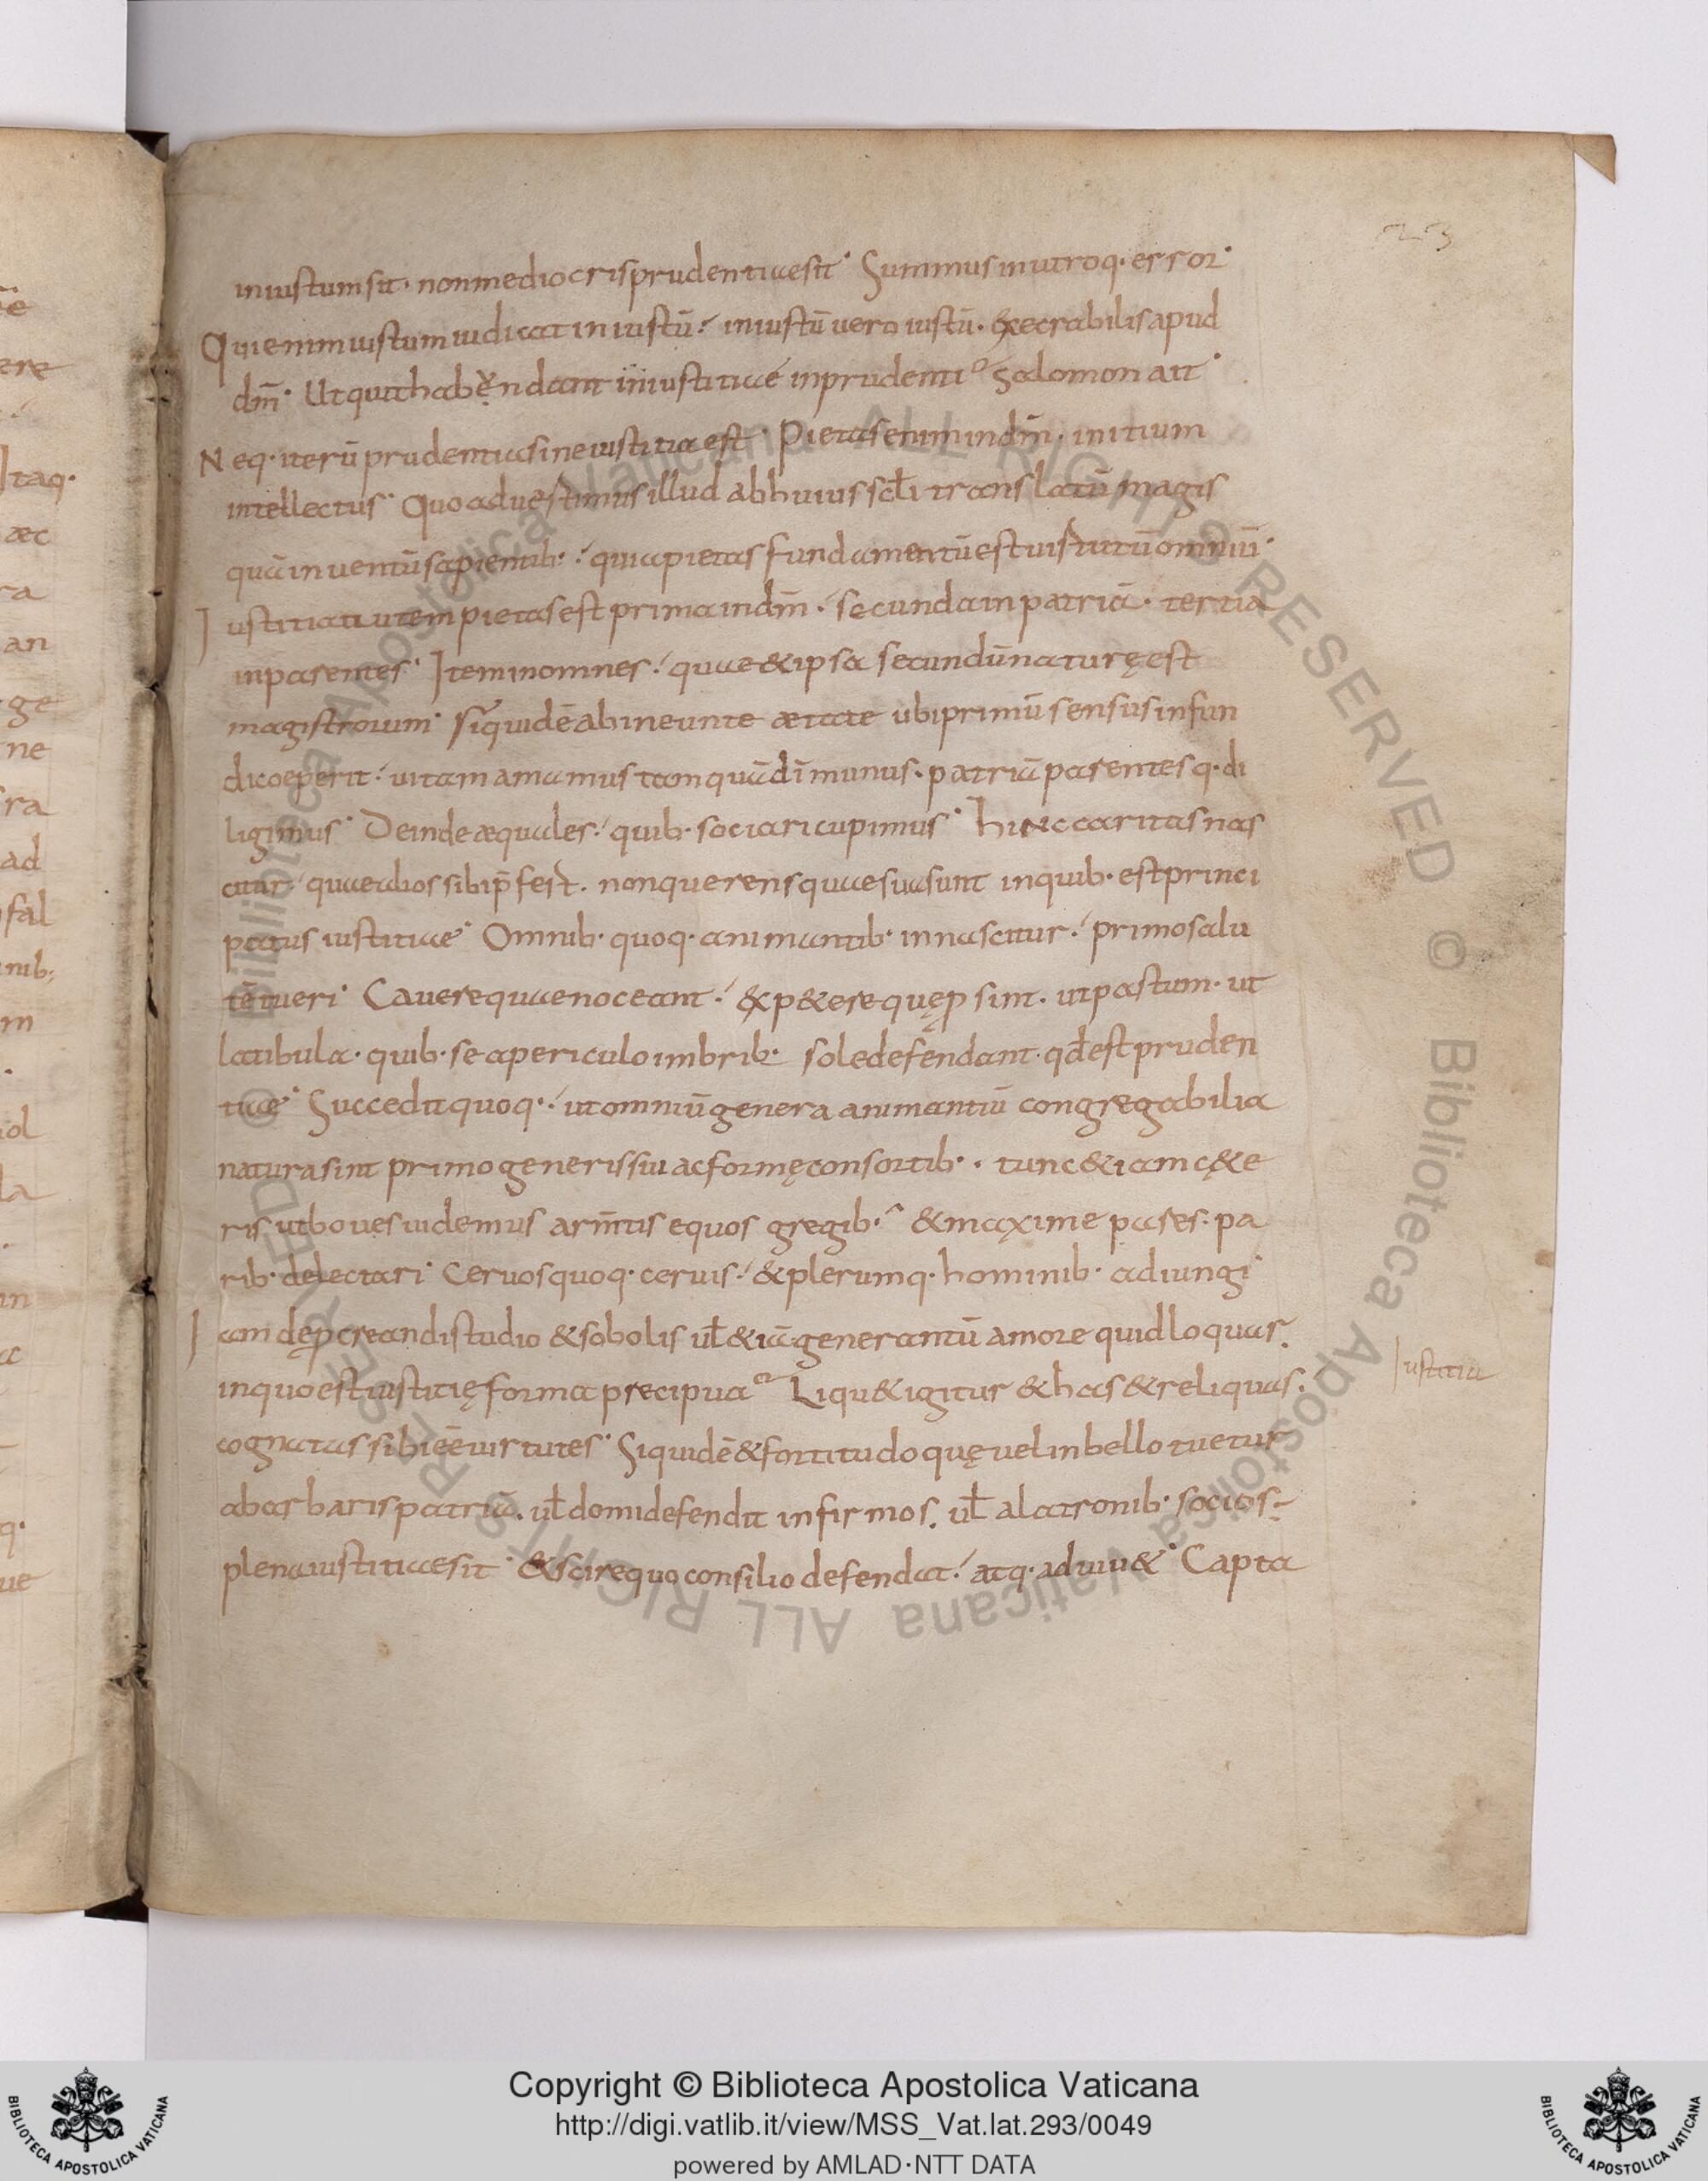 iniustum sit· non mediocris prudentiae sit· Summus in utroq· error·
Qui enim iustum iudicat iniustū· iniustū uero iustū· execrabilis apud
dm̄· Ut quid habundant iniustitiae inprudenti Salomon ait·
Neq· iterū prudentia sine iustitia est· Pietas enim in dm̄· initium
intellectus· Quo aduestimus illud ab huius scł̄i translatū magis
quā inuentū sapientib·· quia pietas fundamentū est uistutū omniū·
Iustitia autem pietas est prima in dm̄· secunda in patriā· tertia
in parentes· Item in omnes· quae & ipsa secundū naturę est
magistroium· Siquidē ab ineunte aetate ubi primū sensus infun
di coeperit· uitam amamus tamquā dī munus· patriā parentesq· di
ligimus· Deinde aequales· quib· sociari cupimus· hiNc caritas nas
citur· quae alios sibi p̄fert· non querens quae sua sunt in quib· est princi
patus iustitiae· Omnib· quoq· animantib· innascitur· primo salu
tē tueri· Cauere quae noceant· & p&ere quę ꝓsint· ut pastum· ut
latibula· quib· se a periculo imbrib· sole defendant· qđ est pruden
tiae· Succedit quoq·· ut omniū genera animantiū congregabilia
natura sint primo generis sui ac formę consortib·· tunc &iam c&e
ris ut boues uidemus arm̄tis equos gregib· & maxime pares· pa
rib· delectari· Ceruos quoq· ceruis· & plerumq· hominib· adiungi·
Iam de ꝓcreandi studio & sobolis uł &iā generantū amore quid loquar·
in quo est iustitię forma precipua Liqu& igitur & has & reliquas·
cognatas sibi eē uirtutes· Siquidē & fortitudo quę uel in bello tuetur
a barbaris patriā· uł domi defendit infirmos· uł a latronib· socios·
plena iustitiae sit· & scire quo consilio defendat· atq· adiuu&· Capta
Iustitia
Copyright © Biblioteca Apostolica Vaticana
http://digi.vatlib.it/view/MSS_Vat.lat.293/0049
powered by AMLAD·NTT DATA
BIBLIOTECA APOSTOLICA VATICANA
BIBLIOTECA APOSTOLICA VATICANA
© Biblioteca Apostolica Vaticana ALL RIGHTS RESERVED © Biblioteca Apostolica Vaticana ALL RIGHTS RESERVED